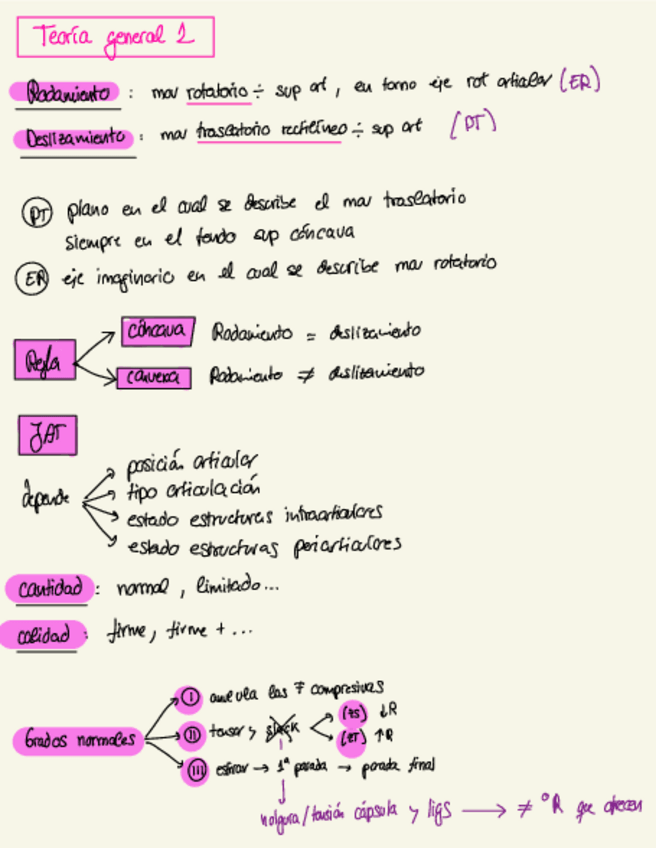 Teoría general 1
Rodamiento : mov rotatorio ÷ sup art, en torno eje rot articular (ER)
Deslizamiento : mov traslatorio rectilíneo ÷ sup art (PT)
PT plano en el cual se describe el mov traslatorio
siempre en el fondo sup cóncava
ER eje imaginario en el cual se describe mov rotatorio
Regla
cóncava Rodamiento = deslizamiento
convexa Rodamiento ≠ deslizamiento
JAT
depende
posición articular
tipo articulación
estado estructuras intraarticulares
estado estructuras periarticulares
cantidad : normal, limitado...
calidad : firme, firme + ...
Grados normales
I anula las F compresivas
II tensar y slack
(ZS) ↓R
(ZT) ↑R
III estirar → 1ª parada → parada final
holgura/tensión cápsula y ligs → ≠ °R que ofrecen